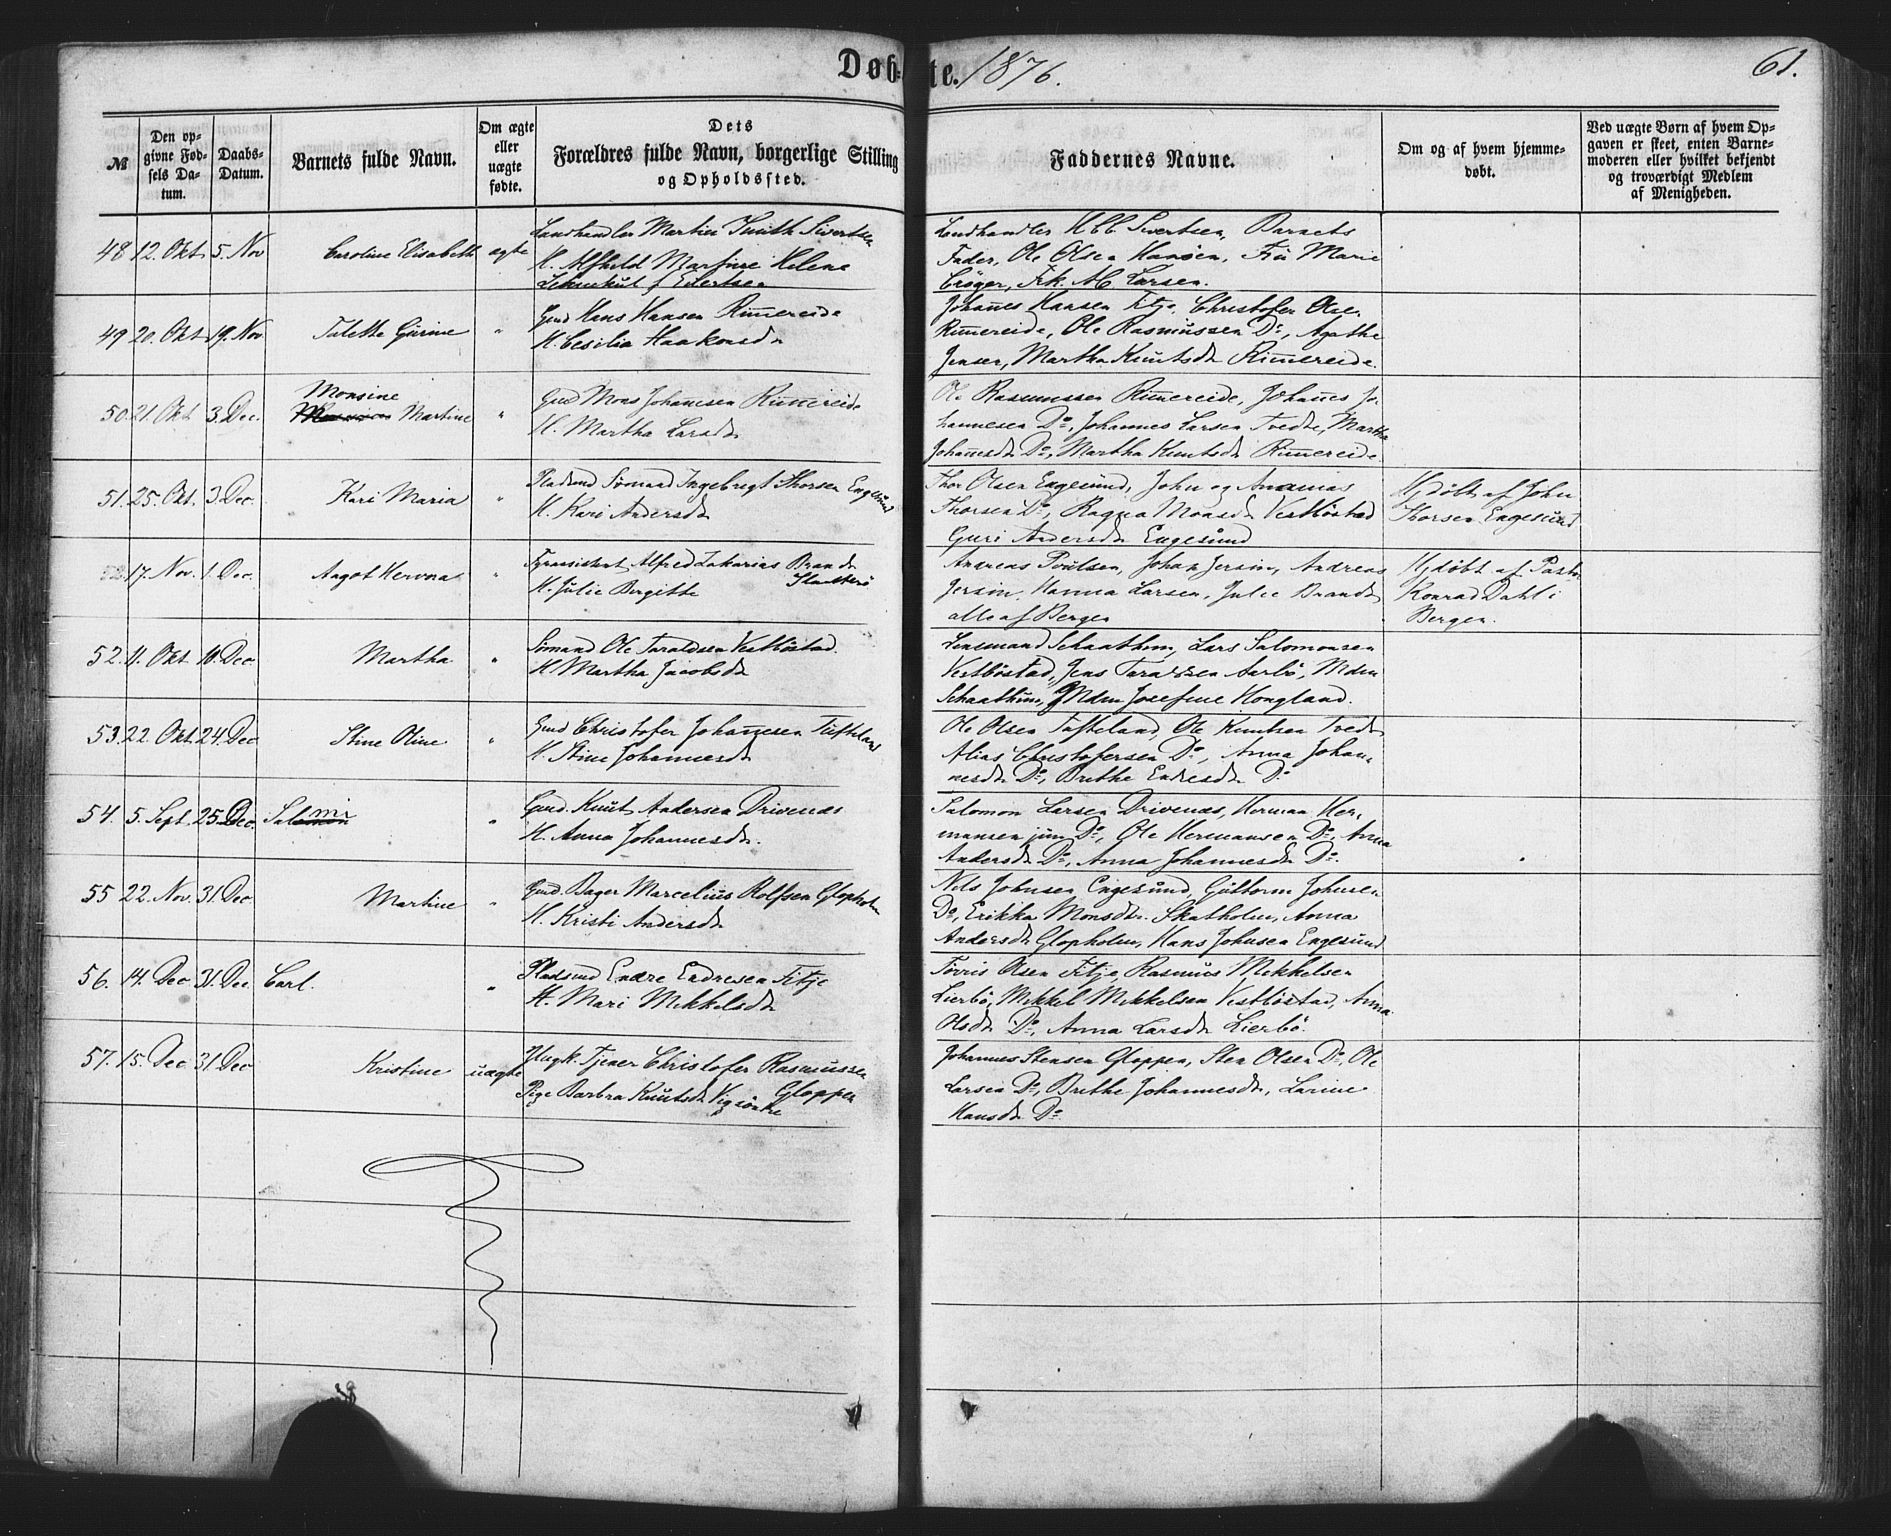 Døb-te. 1876. 61.
№
Den op-
givne Fød-
sels Da-
tum.
Daabs-
Datum.
Barnets fulde Navn.
Om ægte
eller
uægte
fødte.
Dets
Forældres fulde Navn, borgerlige Stilling
og Opholdssted.
Faddernes Navne.
Om og af hvem hjemme-
døbt.
Ved uægte Børn af hvem Op-
gaven er skeet, enten Barne-
moderen eller hvilket bekjendt
og troværdigt Medlem
af Menigheden.
48 12. Okt. 5. Nov Caroline Elisabeth ægte
Landhandler Martin Smith Sivertsen
H. Alfhild Martine Helene
f Eilertsen
Landhandler Sivertsen, Barnets
Fader, Ole Olsen Hansen, Frü Marie
Crøger, Frk. Larsen.
49 20. Okt. 19. Nov. Taletta Gurine "
Gmd Hans Hansen Rimereide
H. Cesilia Haakonsdr
Johannes Hansen Fitje, Christofer Olse.
Rimereide, Ole Rasmussen Do, Agathe
Jensen, Martha Knutsdr Rimereide.
50 21. Okt 3. Dec. Monsine
Martine "
Gmd Mons Johannesen Rimereide
H. Martha Larsdr
Ole Rasmussen Rimereide, Johannes Jo-
hannesen Do, Johannes Larsen Tvedte, Martha
Johannesdr Do, Martha Knutsdr Rimereide.
51. 25. Okt. 3. Dec. Kari Maria "
Pladsmd Sømand Ingebregt Thorsen Engesund
H. Kari Andersdr
Thor Olsen Engesund, John og Ananias
Thorsen Do, Ragna Monsdr Vestbøstad
Guri Andersdr Engesund
Hjdøbt af John
Thorsen Engesund
17. Nov. 1. Dec. Aagot "
Fyrassistent Alfred Zakarias Brandt
H. Julie Birgitte
Andreas Poulsen, Johan Jersin, Andreas
Jersin, Hanna Larsen, Julie Brandt
alle af Bergen
Hjdøbt af Pastor
Konrad Dahl i
Bergen.
52. 11. Okt. 10. Dec. Martha "
Sømand Ole Taraldsen Vestbøstad.
H. Martha Jacobsdr
Lensmand Schaathun, Lars Salomonsen
Vestbøstad, Jens Taraldsen Aarbø, Mdm
Schaathun, Mdm Josefine Hongland.
53. 22. Okt. 24. Dec Stine Oline "
Gmd Christofer Johannesen Tüfteland
H. Stine Johannesdr
Ole Olsen Tüfteland, Ole Knutsen Tvedt,
Alias Christofersen Do, Anna Johan-
nesdr Do, Brithe Endresdr Do
54. 5. Sept. 25. Dec. Salomi "
Gmd. Knüt Andersen Drivenæs
H. Anna Johannesdr.
Salomon Larsen Drivenæs, Herman Her-
mansen jün Do, Ole Hermansen Do, Anna
Andersdr Do, Anna Johannesdr Do.
55 22. Nov. 31. Dec Martine "
Gmd. Bager Marcelius Rolfsen Glopholm
H. Kristi Andersdr
Nils Johnsen Engesund, Güttorm Johnsen
Do, Erikka Monsdtr. Skatholm, Anna
Andersdr Glopholm, Hans Johnsen Engesund
56. 14. Dec 31. Dec. Carl. "
Pladsmd Endre Endresen Fitje
H. Mari Mikkelsdr
Tørris Olsen Fitje Rasmus Mikkelsen
Lierbø, Mikkel Mikkelsen Vestbøstad, Anna
Olsdr Do, Anna Larsdr Lierbø.
57. 15. Dec 31. Dec Kristine uægte
Ungk. Tjener Christofer Rasmussen
Gloppen
Pige Barbra Knutsdr Vigsønæ
Johannes Stensen Gloppen, Sten Olsen Do, Ole
Larsen Do, Brithe Johannesdr, Larine
Hansdr Do